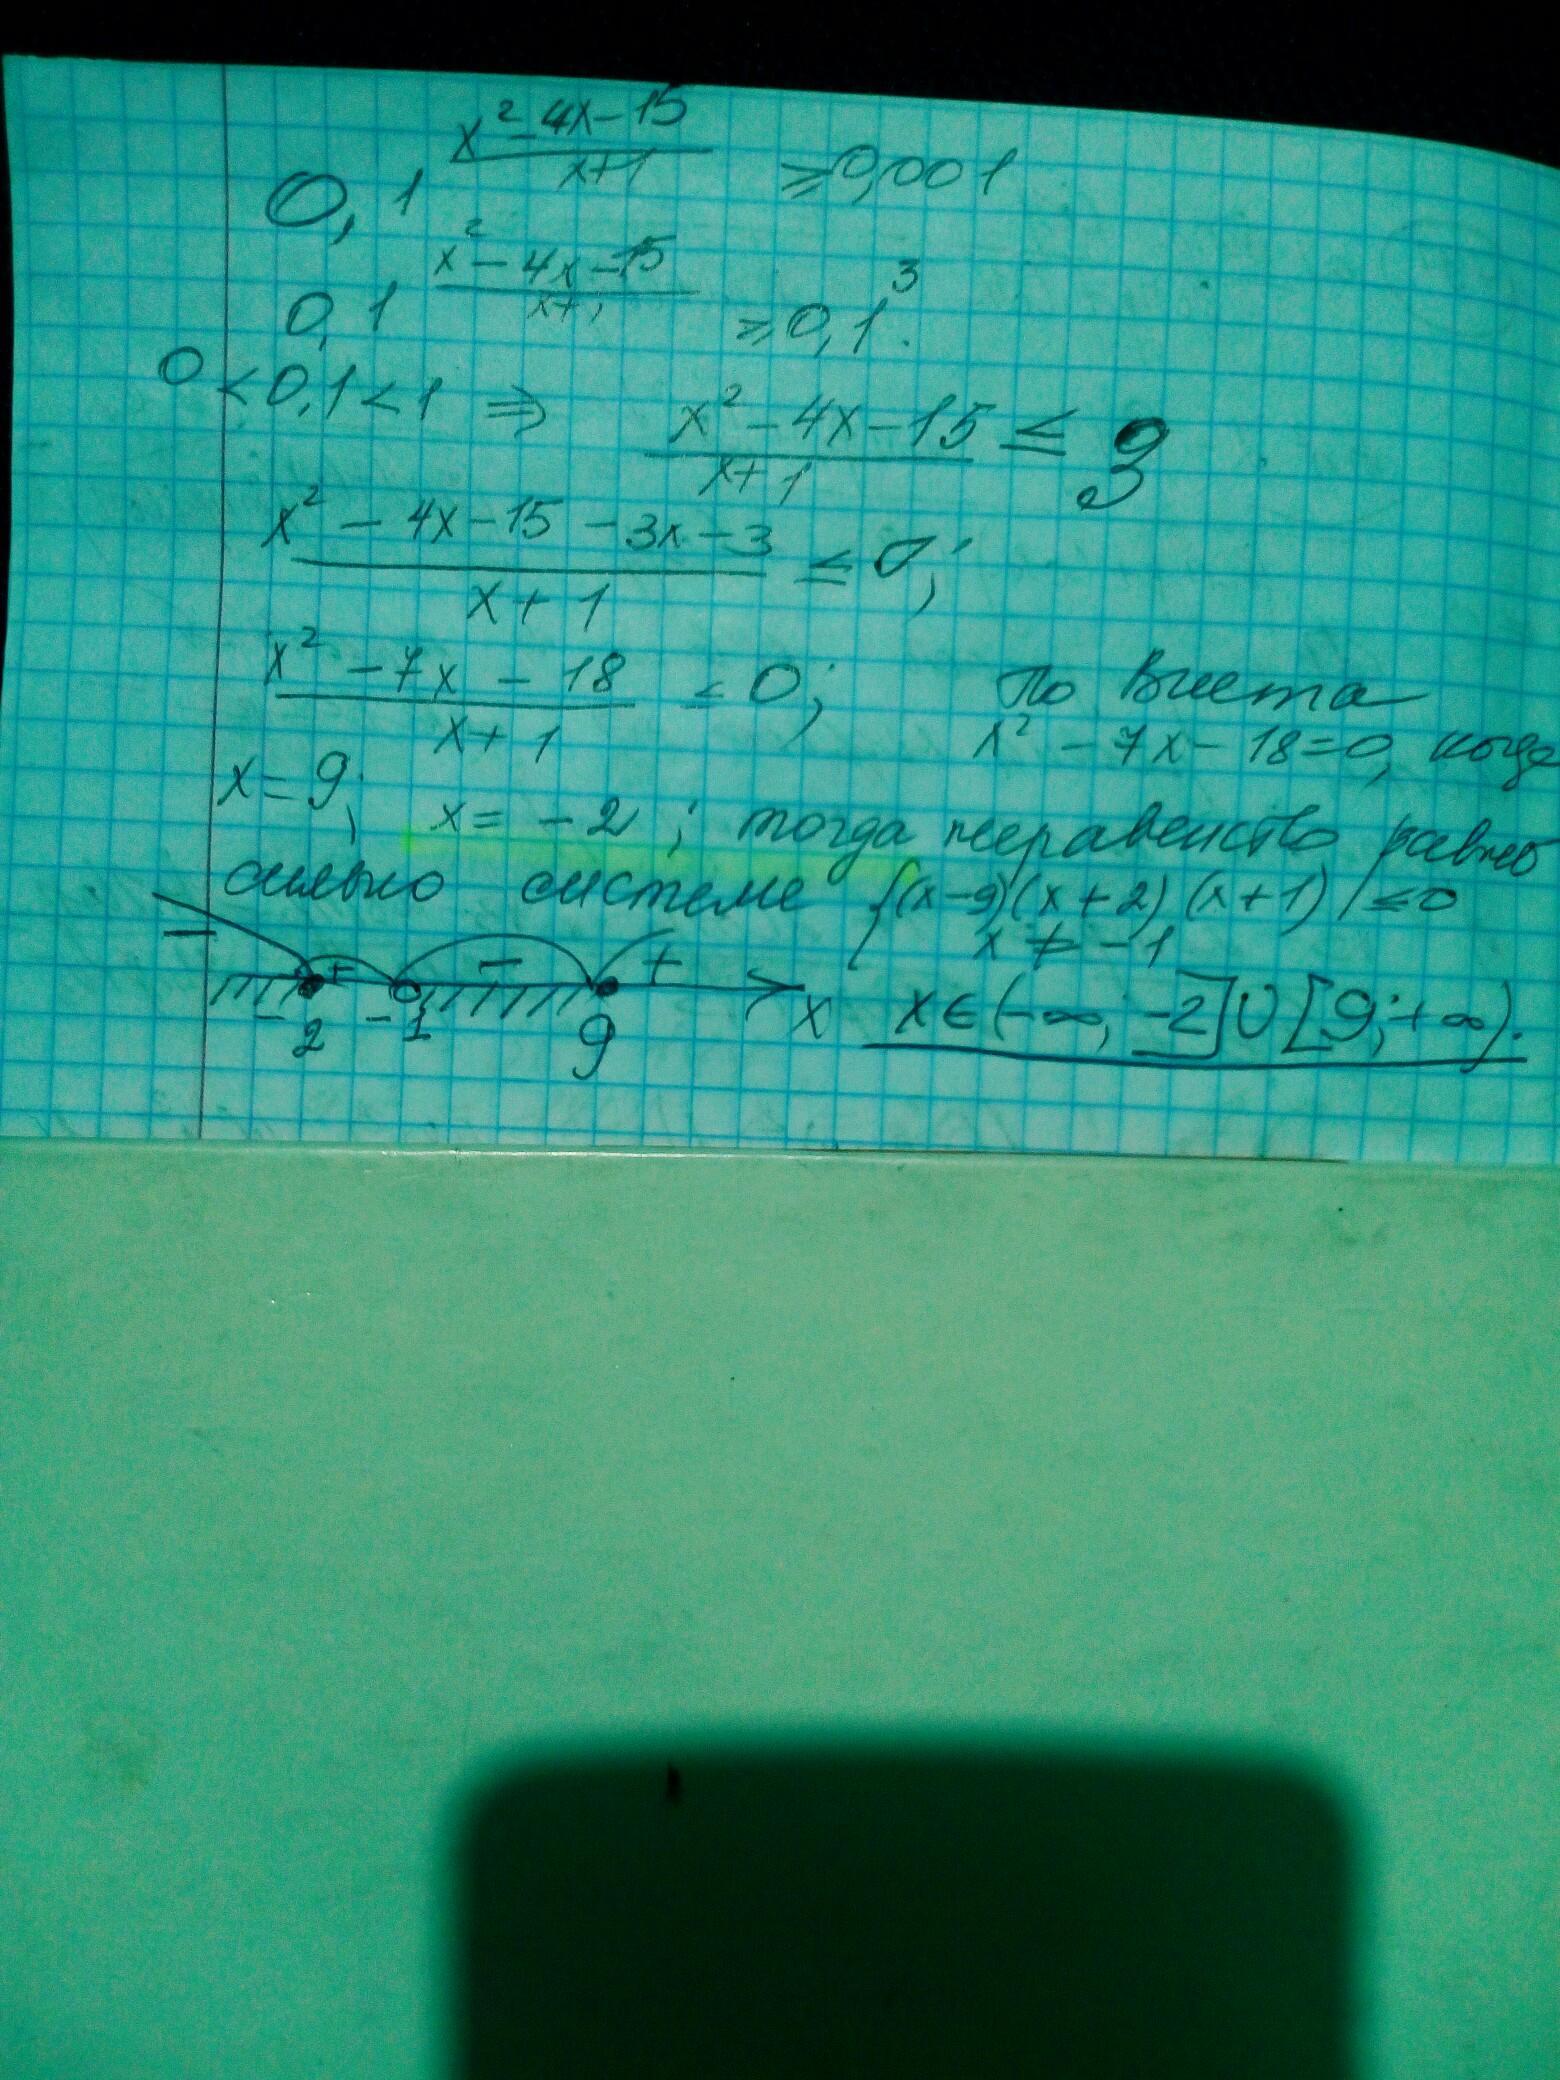 0,1^((x² - 4x - 15)/(x+1)) ≥ 0,001
0,1^((x² - 4x - 15)/(x+1)) ≥ 0,1³.
0 < 0,1 < 1 ⇒ (x² - 4x - 15)/(x+1) ≤ 3
(x² - 4x - 15 - 3x - 3)/(x+1) ≤ 0;
(x² - 7x - 18)/(x+1) ≤ 0; По Виета
x² - 7x - 18 = 0, когда
x = 9; x = -2; тогда неравенство равно
сильно системе {(x-9)(x+2)(x+1) ≤ 0
x ≠ -1
- + - +
-2 -1 9 x x ∈ (-∞; -2] ∪ [9; +∞).